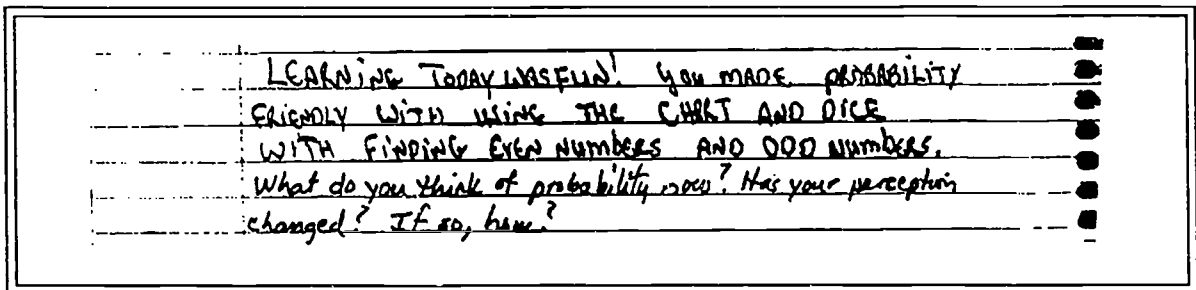 LEARNING TODAY WAS FUN! YOU MADE PROBABILITY
FRIENDLY WITH USING THE CHART AND DICE
WITH FINDING EVEN NUMBERS AND ODD NUMBERS.
What do you think of probability now? Has your perception
changed? If so, how?